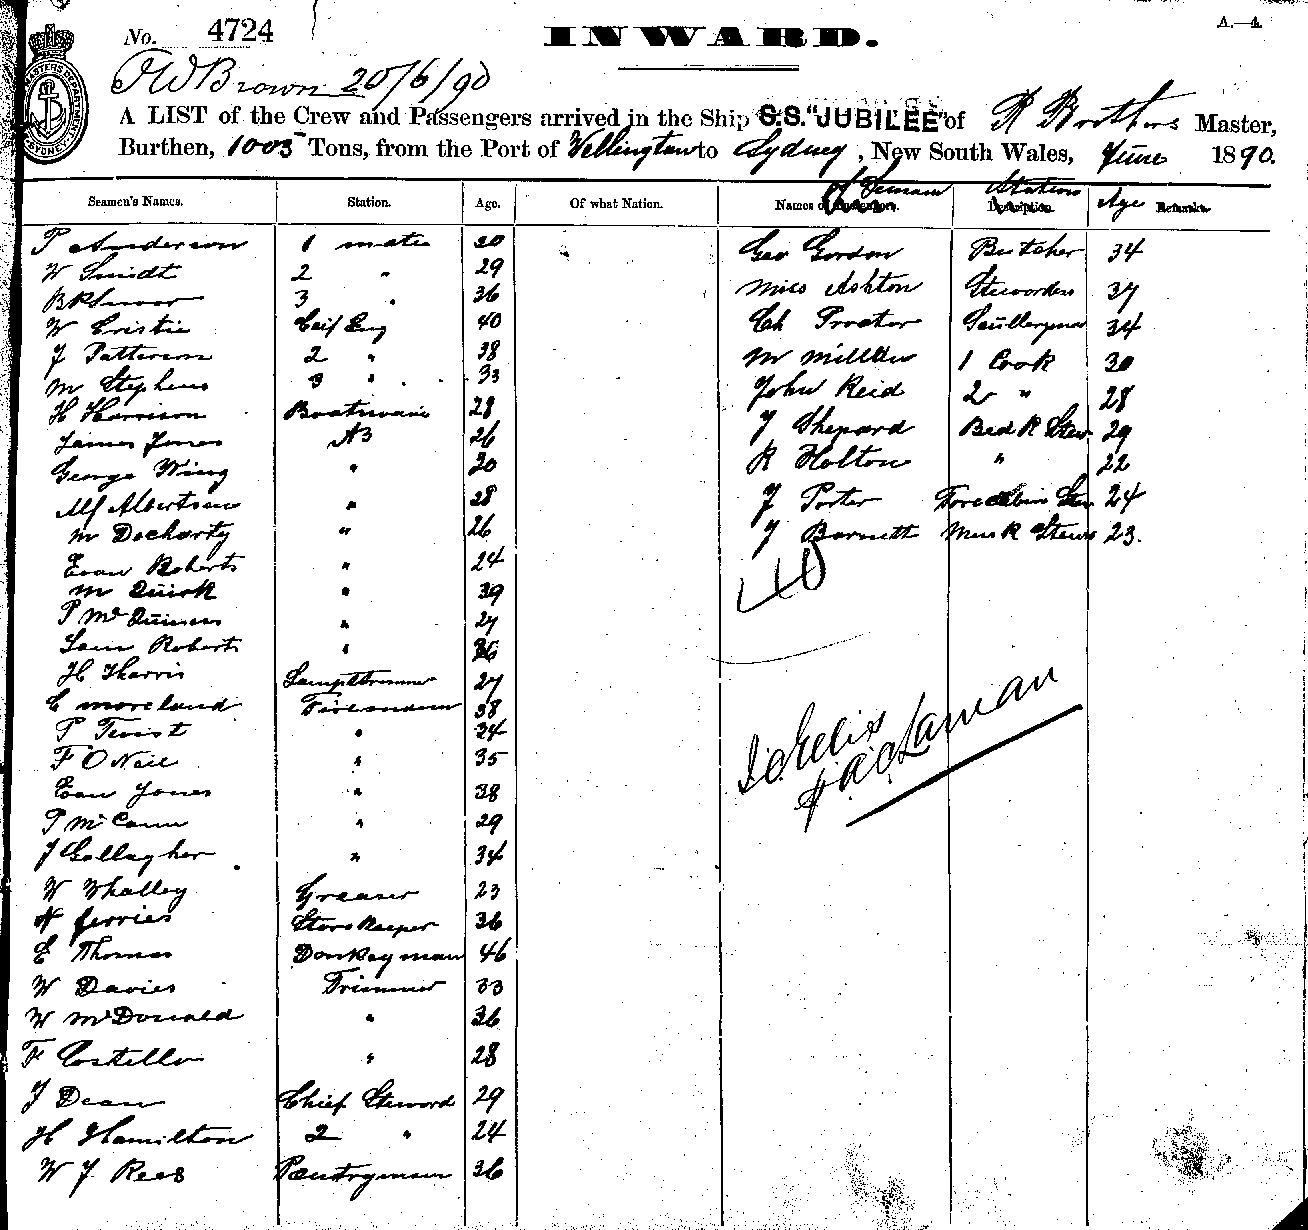 No. 4724
INWARD.
A.—4.
J W Brown 20/6/90
A LIST of the Crew and Passengers arrived in the Ship S.S. "JUBILEE" of R Brothers Master,
Burthen, 1005 Tons, from the Port of Wellington to Sydney, New South Wales, June 1890.
Seamen's Names. Station. Age. Of what Nation. Names of Seamen Station Age Remarks.
P Anderson 1 mate 30
W Smidt 2 " 29
3 " 36
W Cristie Cheif Eng 40
J Patterson 2 " 38
M Stephens 3 " 33
H Harrison Boatswain 28
James Jones AB 26
George Wing " 20
Alf Albertson " 28
M Docharty " 26
Evan Roberts " 24
M Quirk " 39
P McGuiness " 27
Sam Roberts " 36
H Harris Lamptrimmer 27
C Moreland Fireman 38
P Twist " 34
F O Neil " 35
Evan Jones " 38
P McCann " 29
J Gallagher " 34
W Whalley Greaser 23
N ferries Storekeeper 36
E Thomas Donkeyman 46
W Davies Trimmer 33
W McDonald " 36
F Costello " 28
J Dean Chief Steward 29
H Hamilton 2 " 24
W J Rees Pantryman 36
Geo Gordon Butcher 34
Miss Ashton Stewardess 37
Ch Proctor Sculleryman 34
M Miller 1 Cook 30
John Reid 2 " 28
J Shepard Bed R Stew 29
R Holton " 22
J Porter Forecabin Stew 24
J Barnett Mess R Stew 23.
40